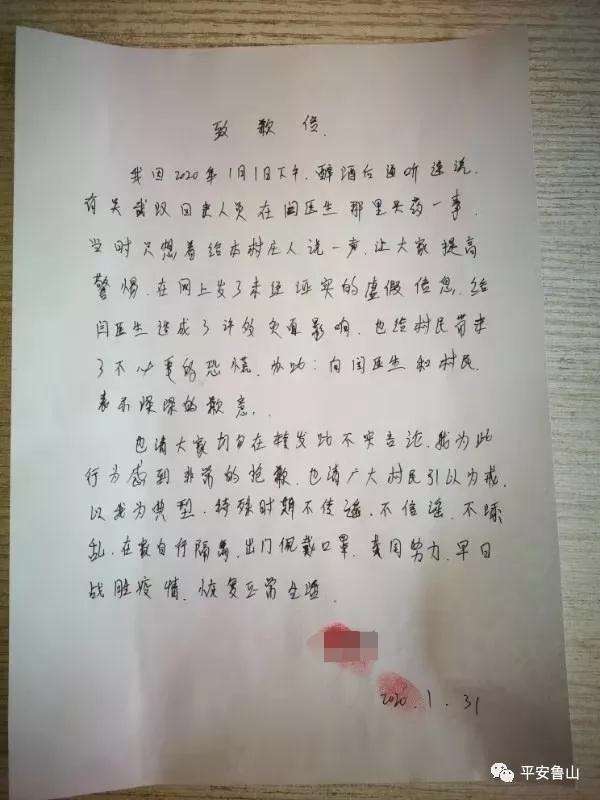 致歉信.
我因2020年1月1日下午.醉酒后道听途说.
有关武汉回来人员在闫医生那里买药一事.
当时只想着给本村庄人说一声.让大家提高
警惕.在网上发了未经证实的虚假信息.给
闫医生造成了许多负面影响.也给村民带来
了不必要的恐慌.为此:向闫医生和村民.
表示深深的歉意.
也请大家切勿在转发此不实言论.我为此
行为感到非常的抱歉.也请广大村民引以为戒.
以我为典型.特殊时期不传谣.不信谣.不
乱.在家自行隔离.出门佩戴口罩.共同努力.早日
战胜疫情.恢复正常生活.
2020.1.31
平安鲁山